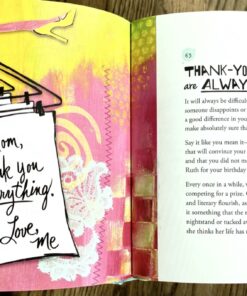 om,
nk you
erything.
Love,
me
65
THANK-YO
are ALWAY
It will always be difficul
someone disappoints or
a good difference in your
make absolutely sure the
Say it like you mean it—
that will convince your
and that you did not me
Ruth for your birthday
Every once in a while, w
competing for a prize. O
and literary flourish, as
it something that she n
nightstand or tucked aw
she thinks her life has n